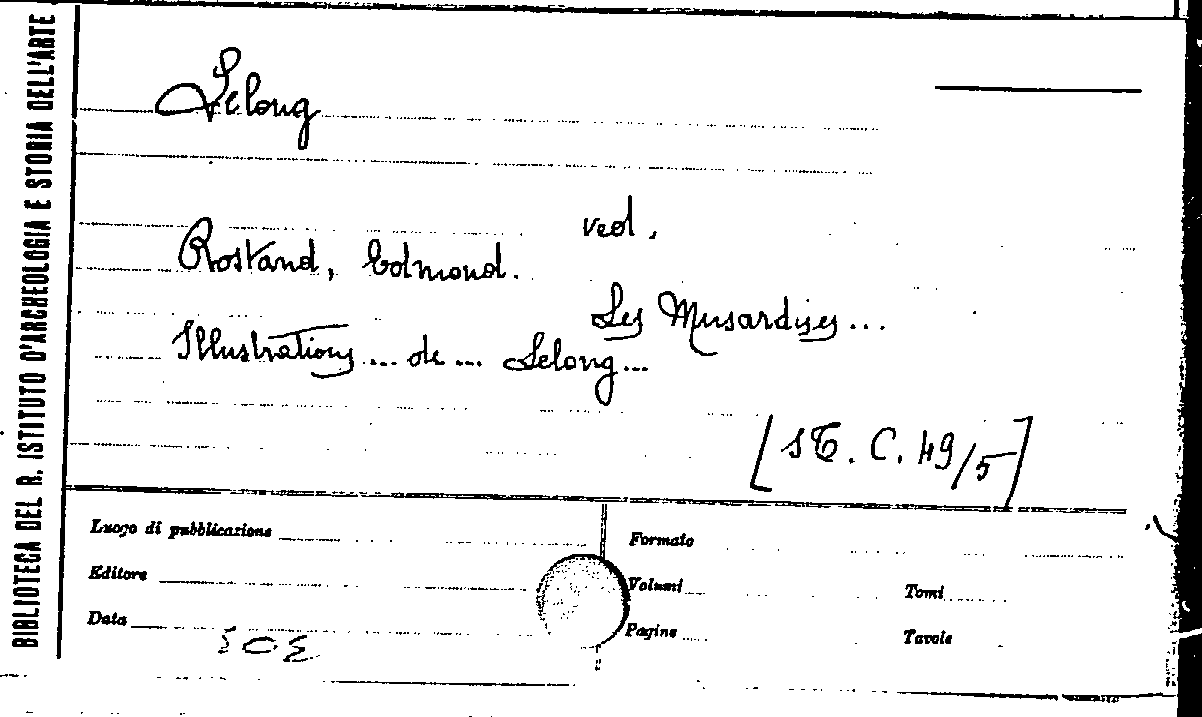 BIBLIOTECA DEL R. ISTITUTO D'ARCHEOLOGIA E STORIA DELL'ARTE
Lelong
ved.
Rostand, Edmond.
Les Musardises...
Illustrations... de... Lelong...
[ST. C. 49/5]
Luogo di pubblicazione
Formato
Editore
Volumi
Tomi
Data
Pagine
Tavole